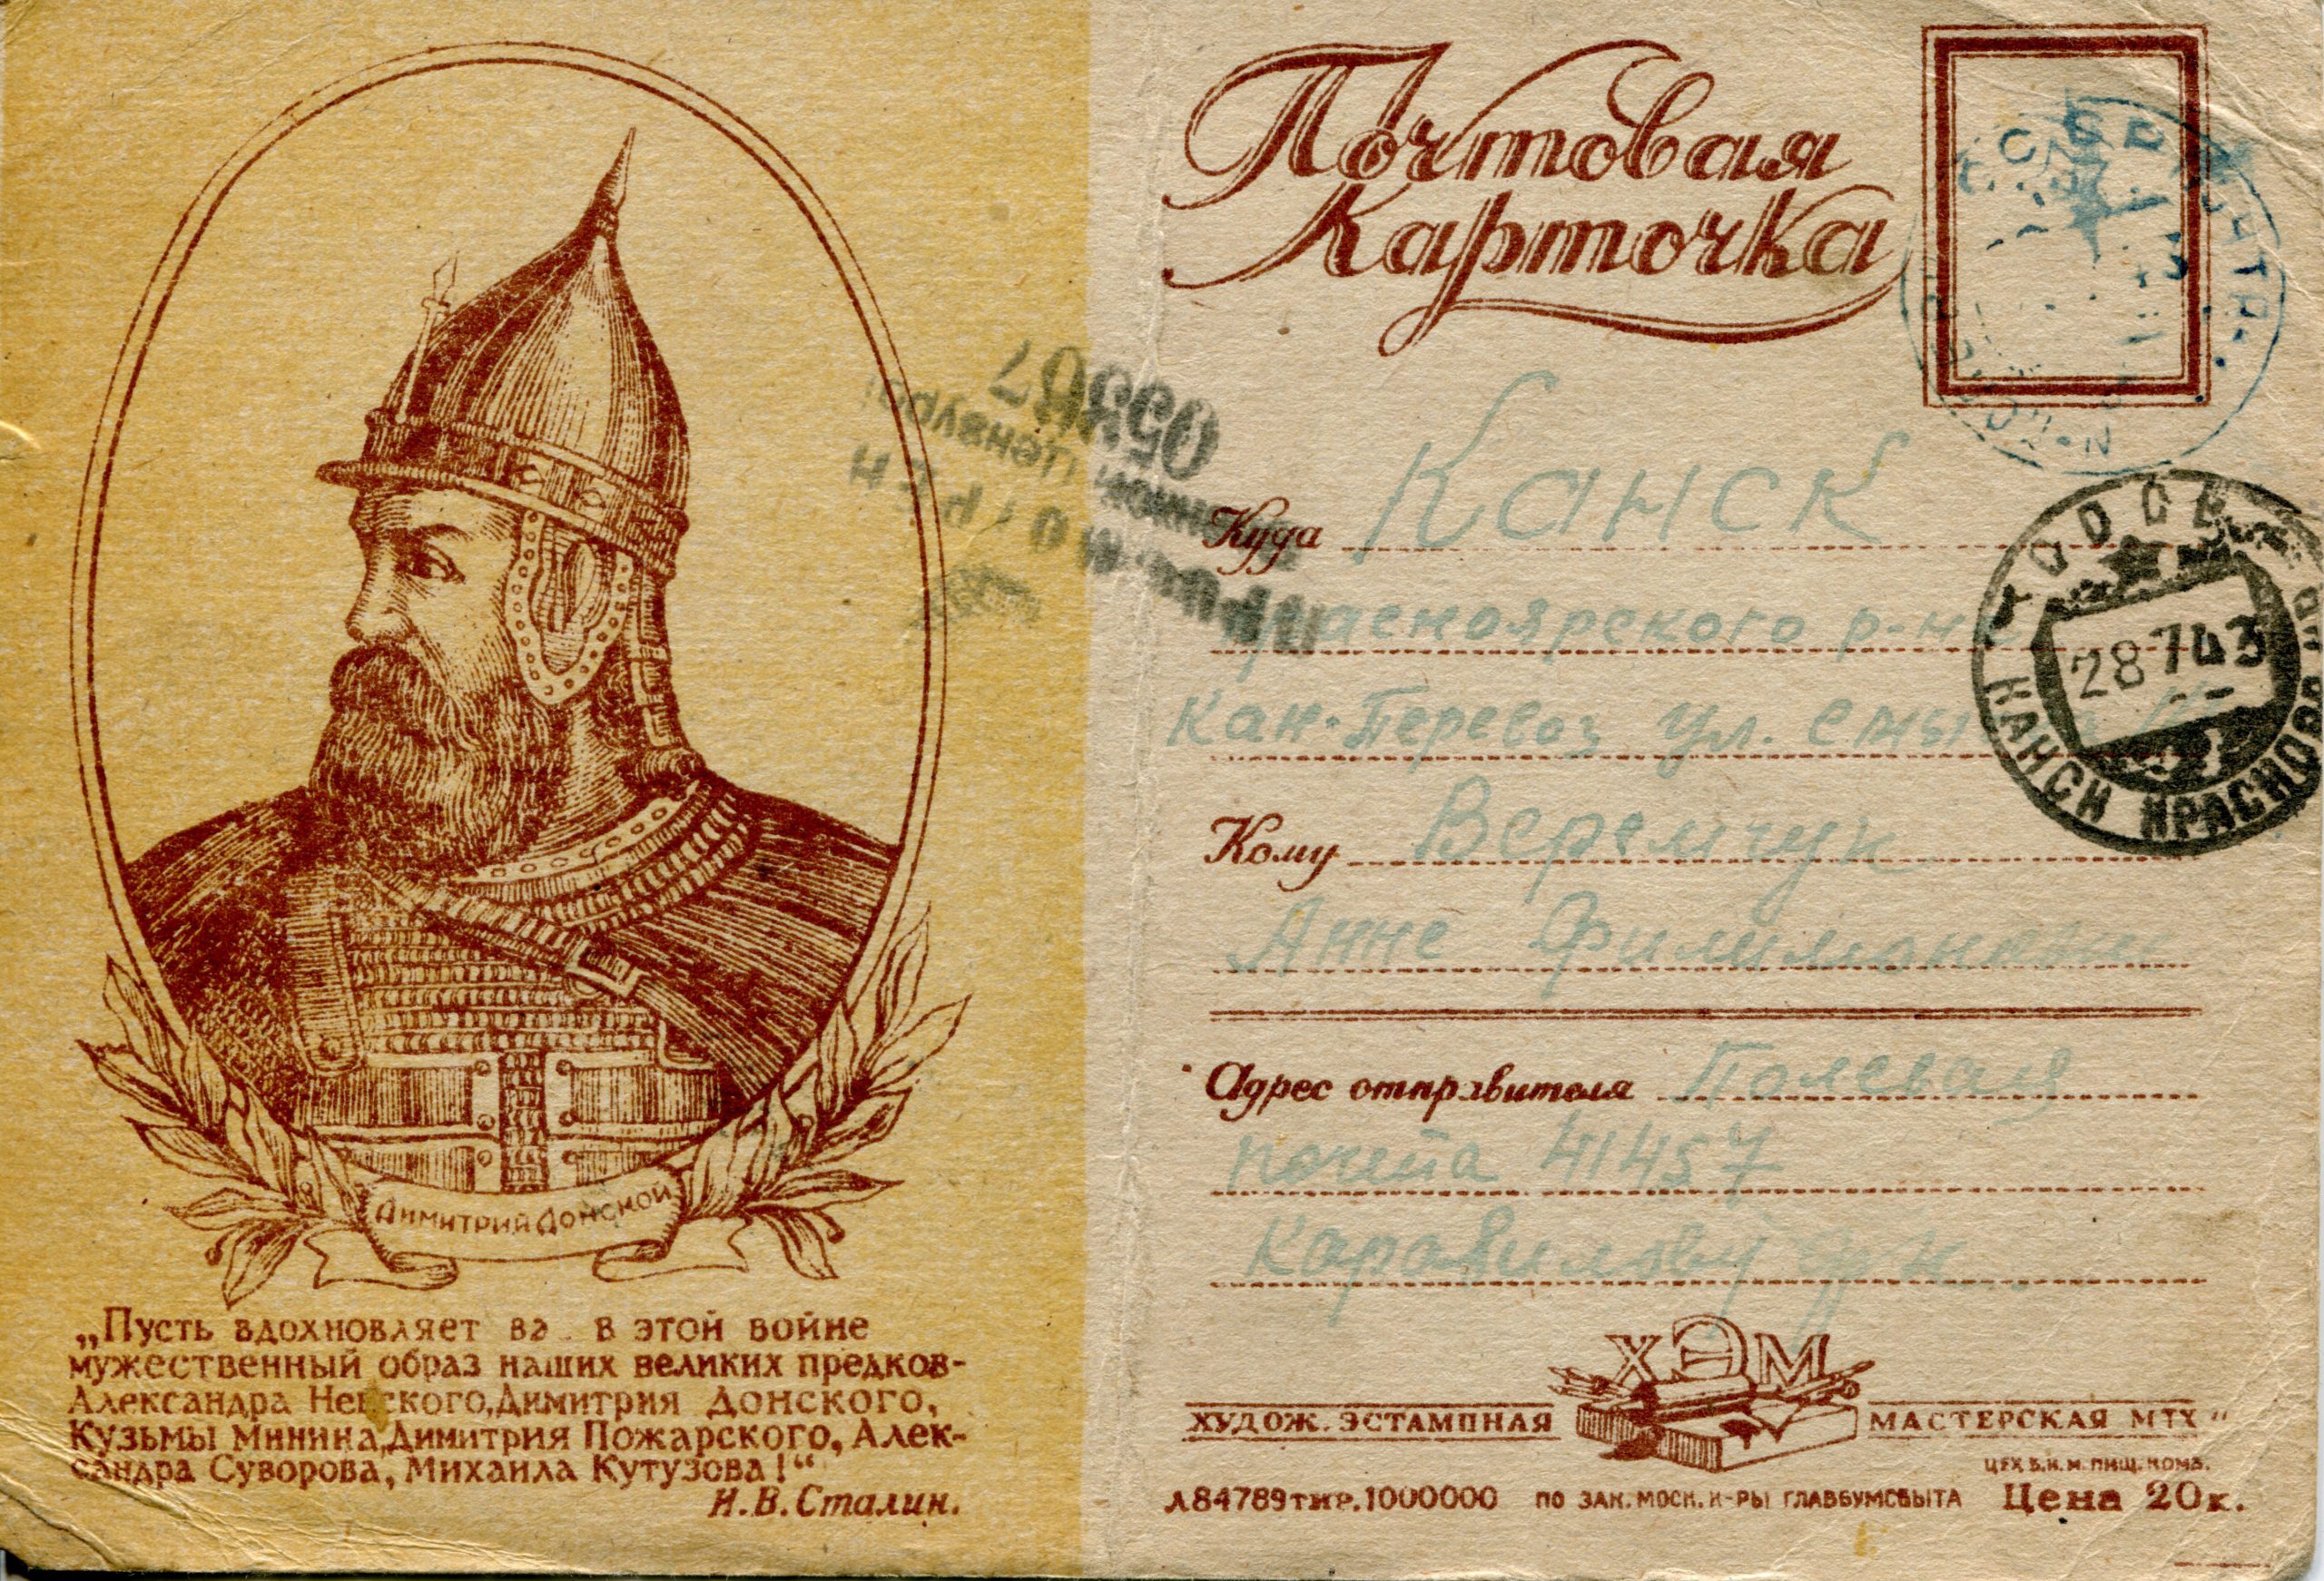 Димитрий Донской
„Пусть вдохновляет ва в этой войне
мужественный образ наших великих предков-
Александра Невского, Димитрия Донского,
Кузьмы Минина, Димитрия Пожарского, Алек-
сандра Суворова, Михаила Кутузова!“
И. В. Сталин.
Почтовая
Карточка
Куда Канск
Красноярского р-на
Кан-Перевоз ул.
Кому Веремчук
Анне
Адрес отправителя Полевая
почта 41457
ХЭМ
ХУДОЖ. ЭСТАМПНАЯ МАСТЕРСКАЯ МТХ"
ЦЕХ Б.И.М. ПИЩ. КОМБ.
Л84789 тир. 1000000 ПО ЗАК. МОСК. К-РЫ ГЛАВБУМСБЫТА Цена 20к.
СССР
28 7 43
КАНСК КРАСНОЯР